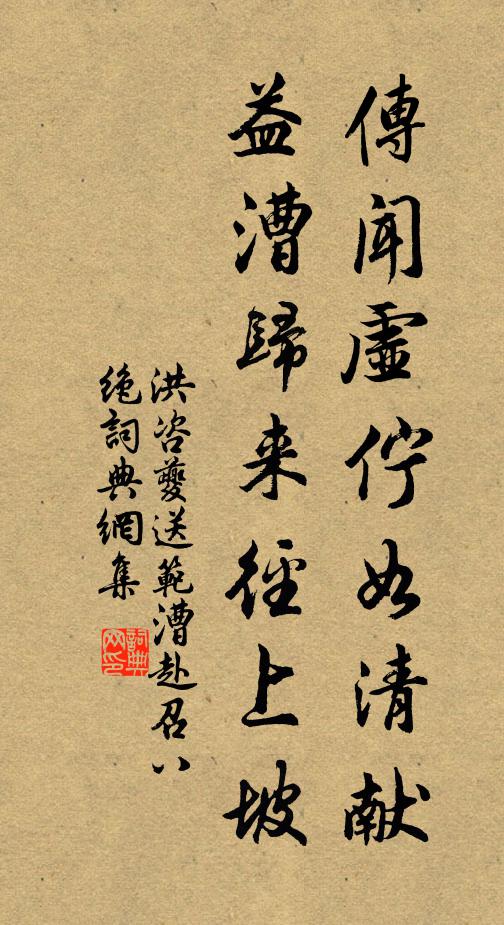 傳聞虛佇如清献
益漕歸来徑上坡
洪咨夔送範漕赴召八
絶詞典網集
詞典网印